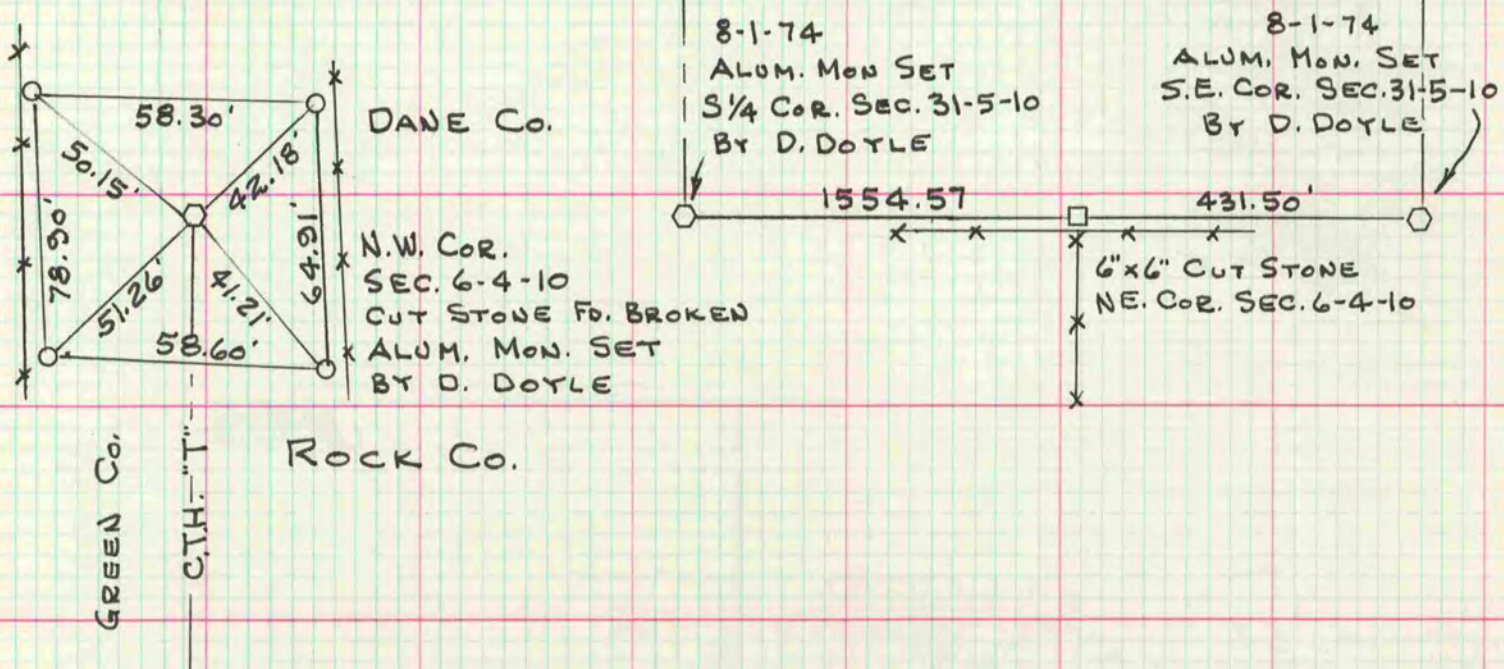 58.30'
50.15'
42.18'
78.90'
64.91'
51.26'
41.21'
58.60'
DANE CO.
N.W. COR.
SEC. 6-4-10
CUT STONE FD. BROKEN
ALUM. MON. SET
BY D. DOYLE
GREEN CO.
C.T.H. "T"
ROCK CO.
8-1-74
ALUM. MON SET
S 1/4 COR. SEC. 31-5-10
BY D. DOYLE
8-1-74
ALUM. MON. SET
S.E. COR. SEC. 31-5-10
BY D. DOYLE
1554.57
431.50'
6"x6" CUT STONE
NE. COR. SEC. 6-4-10